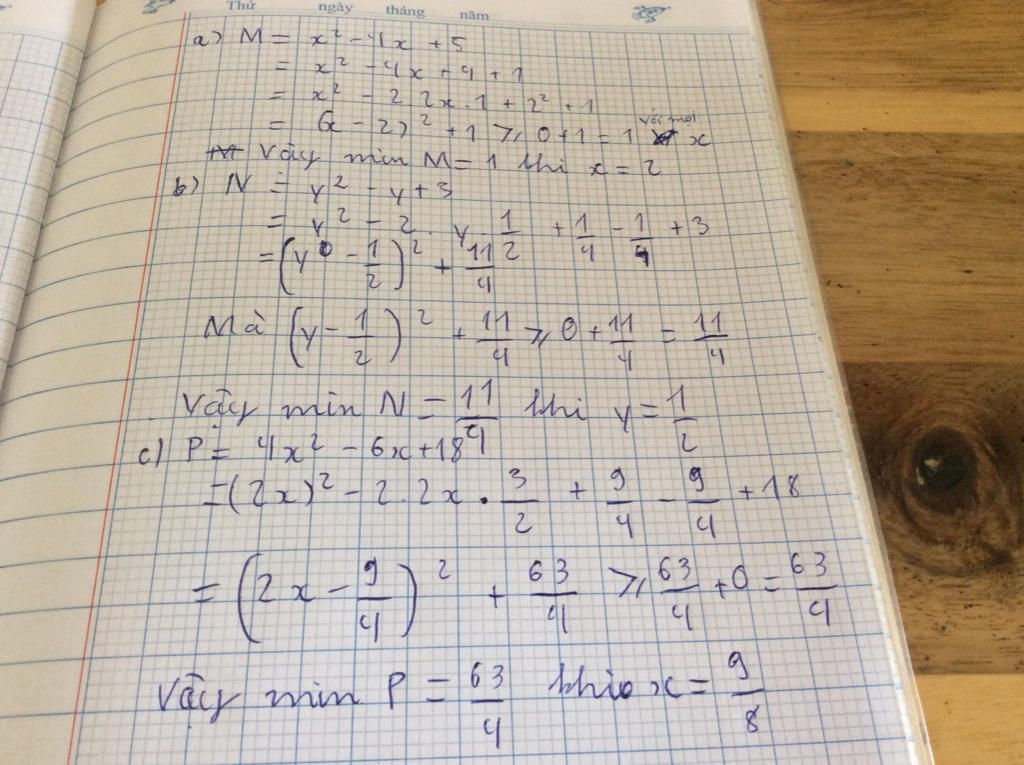 Thứ ngày tháng năm
a) M = x² - 4x + 5
= x² - 4x + 4 + 1
= x² - 2.2x.1 + 2² + 1
= (x - 2)² + 1 ⩾ 0 + 1 = 1 với mọi x
Vậy min M = 1 khi x = 2
b) N = y² - y + 3
= y² - 2 . y . 1/2 + 1/4 - 1/4 + 3
= (y - 1/2)² + 11/4
Mà (y - 1/2)² + 11/4 ⩾ 0 + 11/4 = 11/4
Vậy min N = 11/4 khi y = 1/2
c) P = 4x² - 6x + 18
= (2x)² - 2.2x . 3/2 + 9/4 - 9/4 + 18
= (2x - 9/4)² + 63/4 ⩾ 63/4 + 0 = 63/4
Vậy min P = 63/4 khi x = 9/8